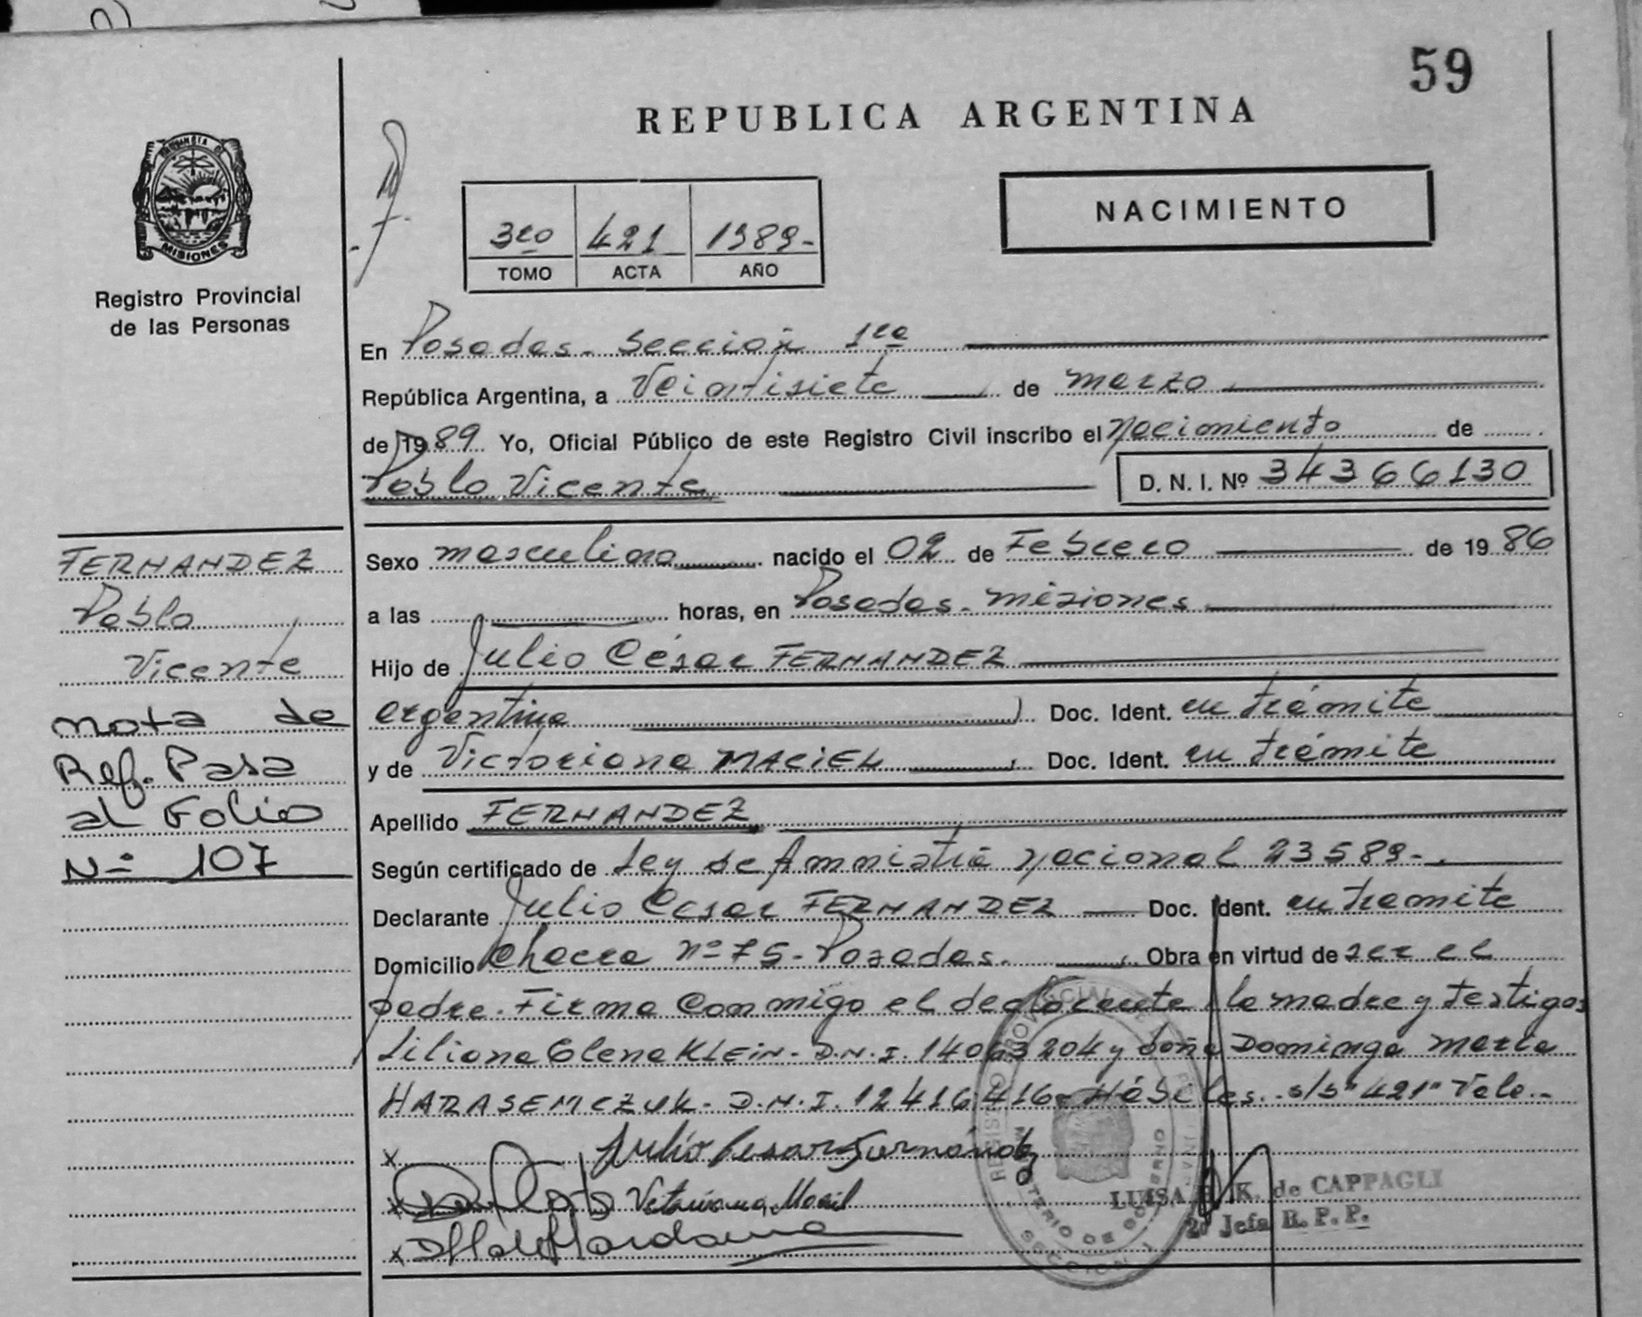 59
REPUBLICA ARGENTINA
NACIMIENTO
3ro 421 1989-
TOMO ACTA AÑO
MISIONES
Registro Provincial
de las Personas
En Posadas - Sección 1ra
República Argentina, a Veintisiete de marzo
de 1989 Yo, Oficial Público de este Registro Civil inscribo el Nacimiento de
Pablo Vicente D. N. I. Nº 34366130
Sexo masculino nacido el 02 de Febrero de 1986
a las horas, en Posadas - misiones
Hijo de Julio César FERNANDEZ
argentino Doc. Ident. en trámite
y de Victoriana MACIEL Doc. Ident. en trámite
Apellido FERNANDEZ
Según certificado de Ley de Amnistia Nacional 23589-
Declarante Julio Cesar FERNANDEZ Doc. Ident. en tramite
Domicilio Chacra nº 75 - Posadas. Obra en virtud de ser el
padre. Firma Conmigo el declarante, la madre y testigos
Liliana Elena KLEIN - D.N.I. 14063204 y doña Dominga Marta
HARASEMCZUK - D.N.I. 12416416 - Hábiles. s/bº 421º Vale.-
FERNANDEZ
Pablo
Vicente
nota de
Ref. Pasa
al Folio
Nº 107
x Julio Cesar Fernández
x
x
LUISA K. de CAPPAGLI
2º Jefa R. P. P.
SECCION 1